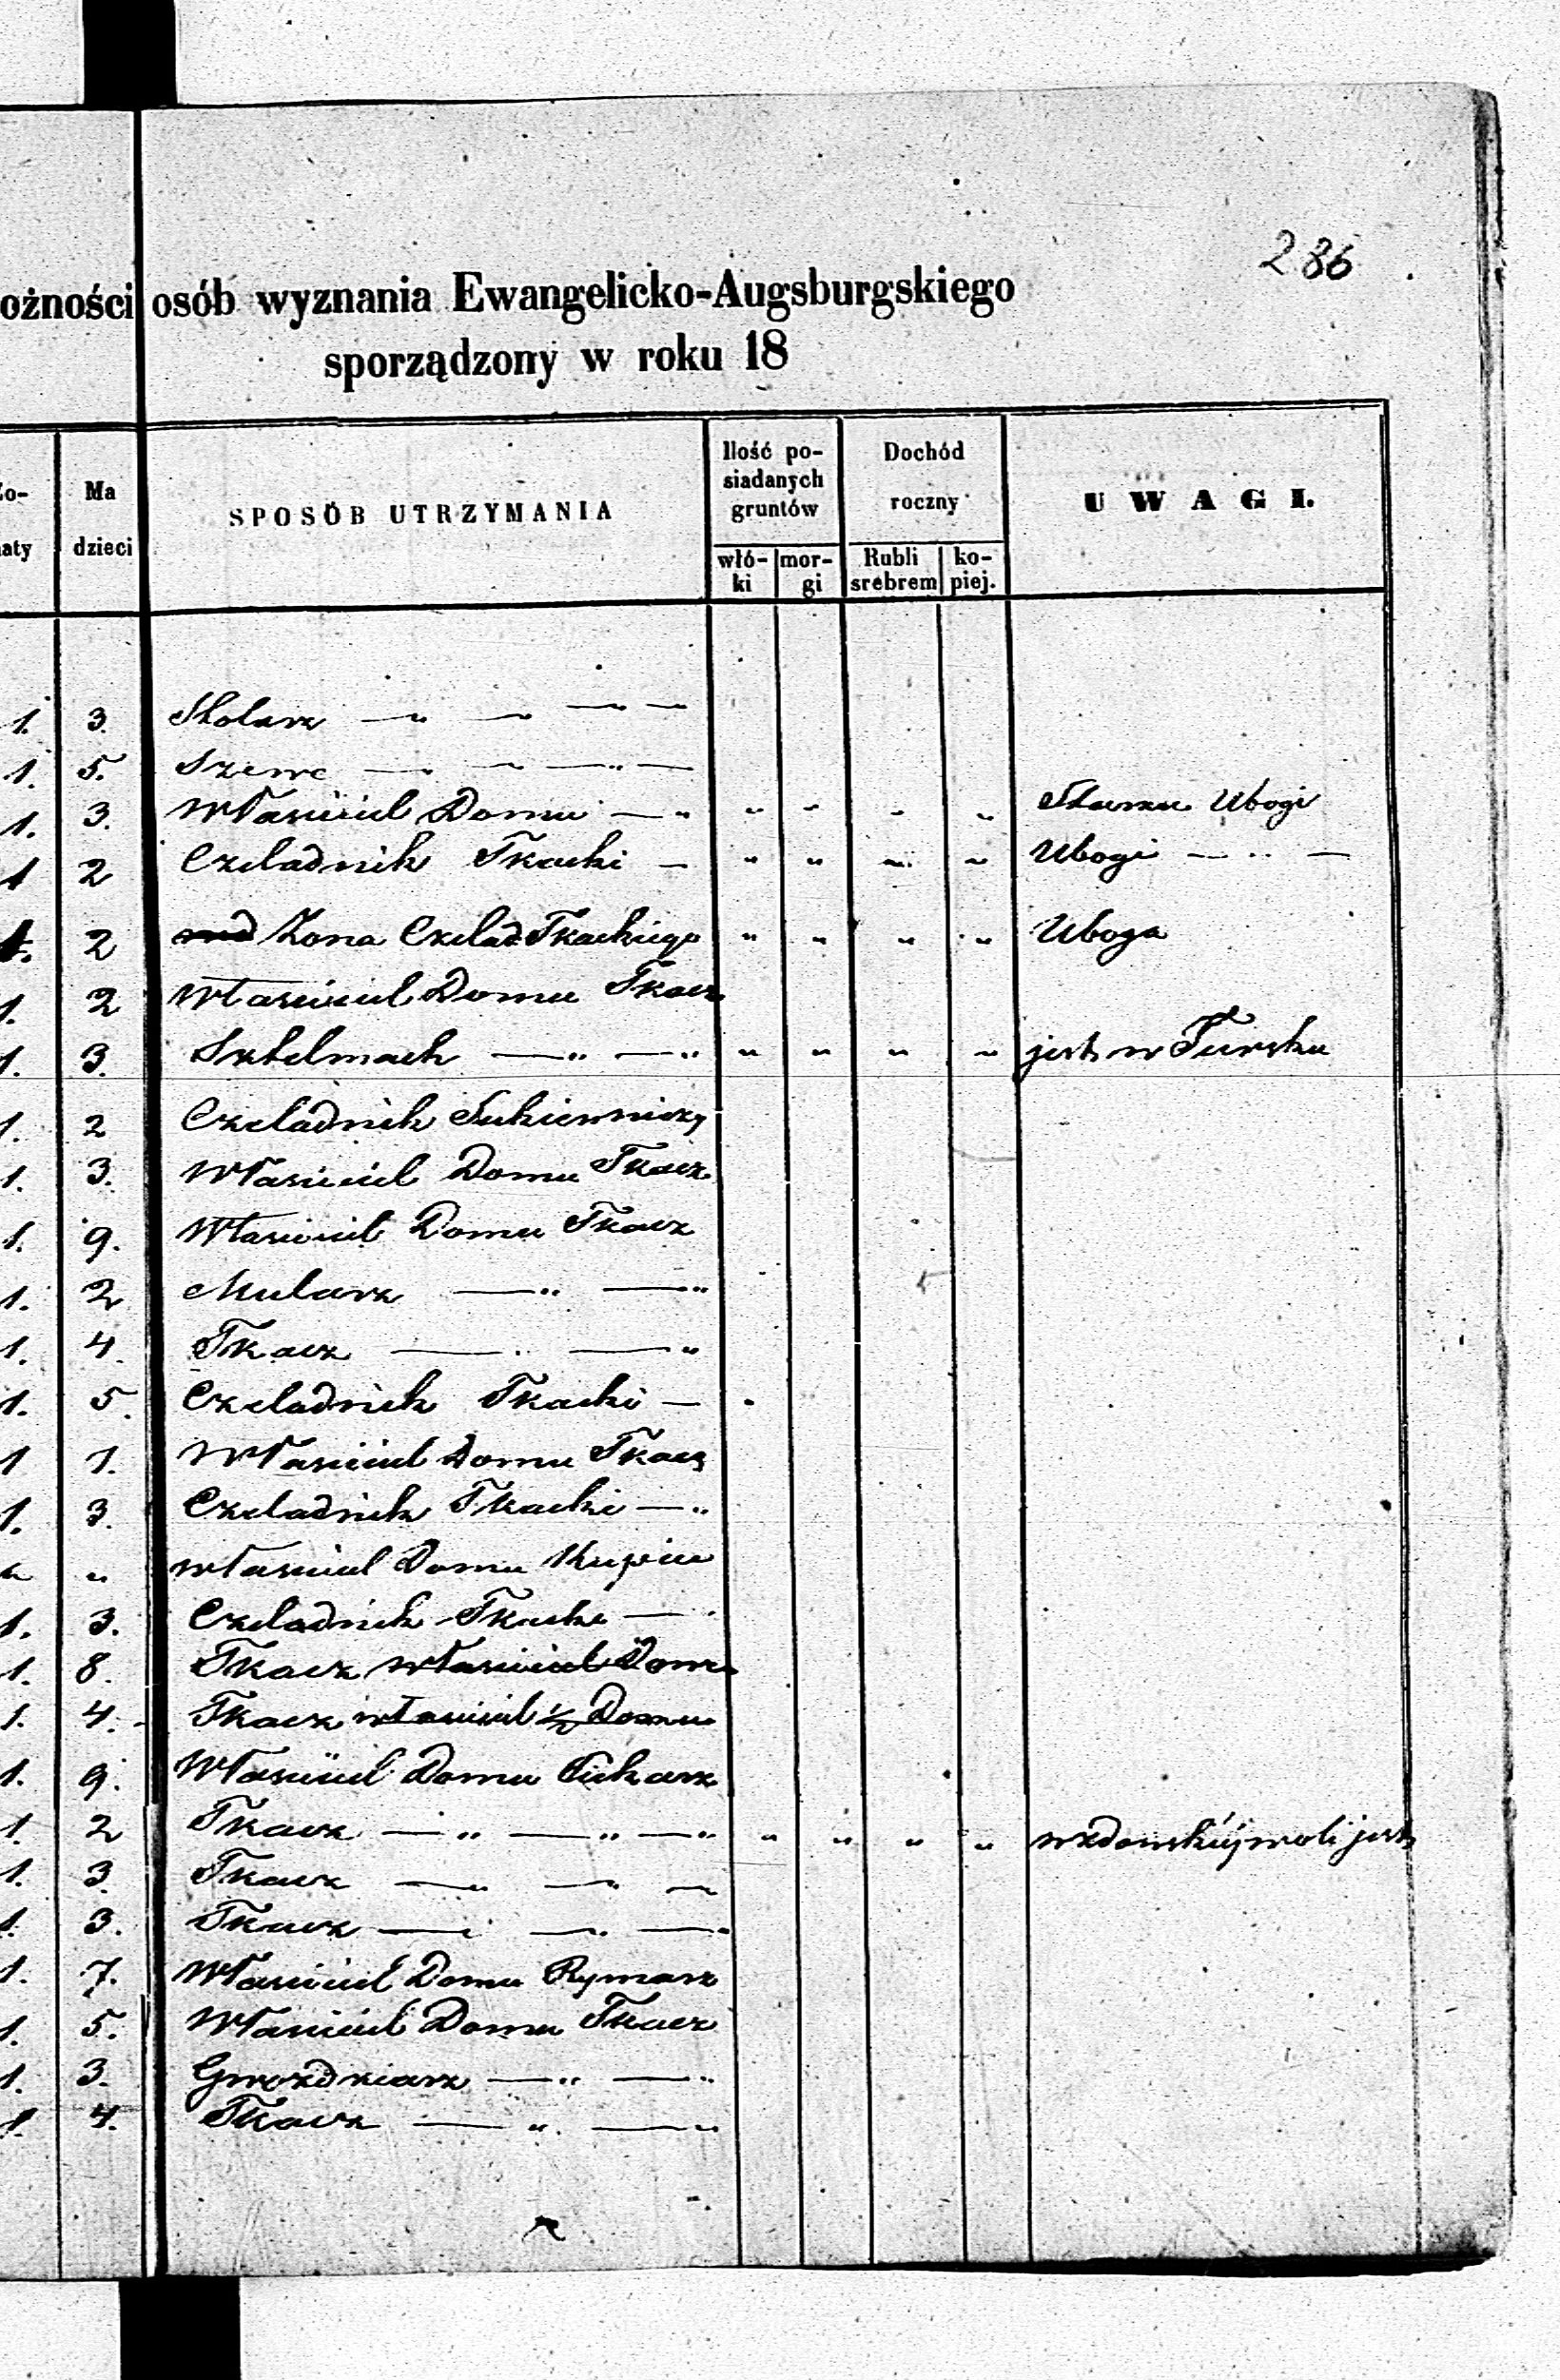 286
ożności osób wyznania Ewangelicko-Augsburgskiego
sporządzony w roku 18
Żo-
naty
Ma
dzieci
SPOSÓB UTRZYMANIA
Ilość po-
siadanych
gruntów
włó-
ki
mor-
gi
Dochód
roczny
Rubli
srebrem
ko-
piej.
UWAGI.
1. 3. Stolarz — „ — — „ —
1. 5. Szewc — . — — „ —
1. 3. Właściciel Domu — „ „ „ „ „ Ubogi
1 2 Czeladnik Tkacki — „ „ „ „ Ubogi — „ —
1. 2 Żona Czelad Tkackiego „ „ „ „ Uboga
1. 2 Właściciel Domu Tkacz
1. 3. Sztelmach — „ — „ „ „ „ „ jest w Tursku
1. 2 Czeladnik Sukienniczy
1. 3. Właściciel Domu Tkacz
1. 9. Właściciel Domu Tkacz
1. 2 Mularz — „ — „
1. 4. Tkacz — . — „
1. 5. Czeladnik Tkacki —
1 1. Właściciel Domu Tkacz
1. 3. Czeladnik Tkacki — „
„ „ właściciel Domu Kupiec
1. 3. Czeladnik Tkacki — .
1. 8. Tkacz właściciel Domu
1. 4. Tkacz właściciel ½ Domu
1. 9. Właściciel Domu
1. 2 Tkacz — „ — „ — „ „ „ „ „ woli jest
1. 3. Tkacz — „ — „ —
1. 3. Tkacz — „ — „ —
1. 7. Właściciel Domu Rymarz
1. 5. Właściciel Domu Tkacz
1. 3. Gwoździarz — „ — „
1. 4. Tkacz — „ — „